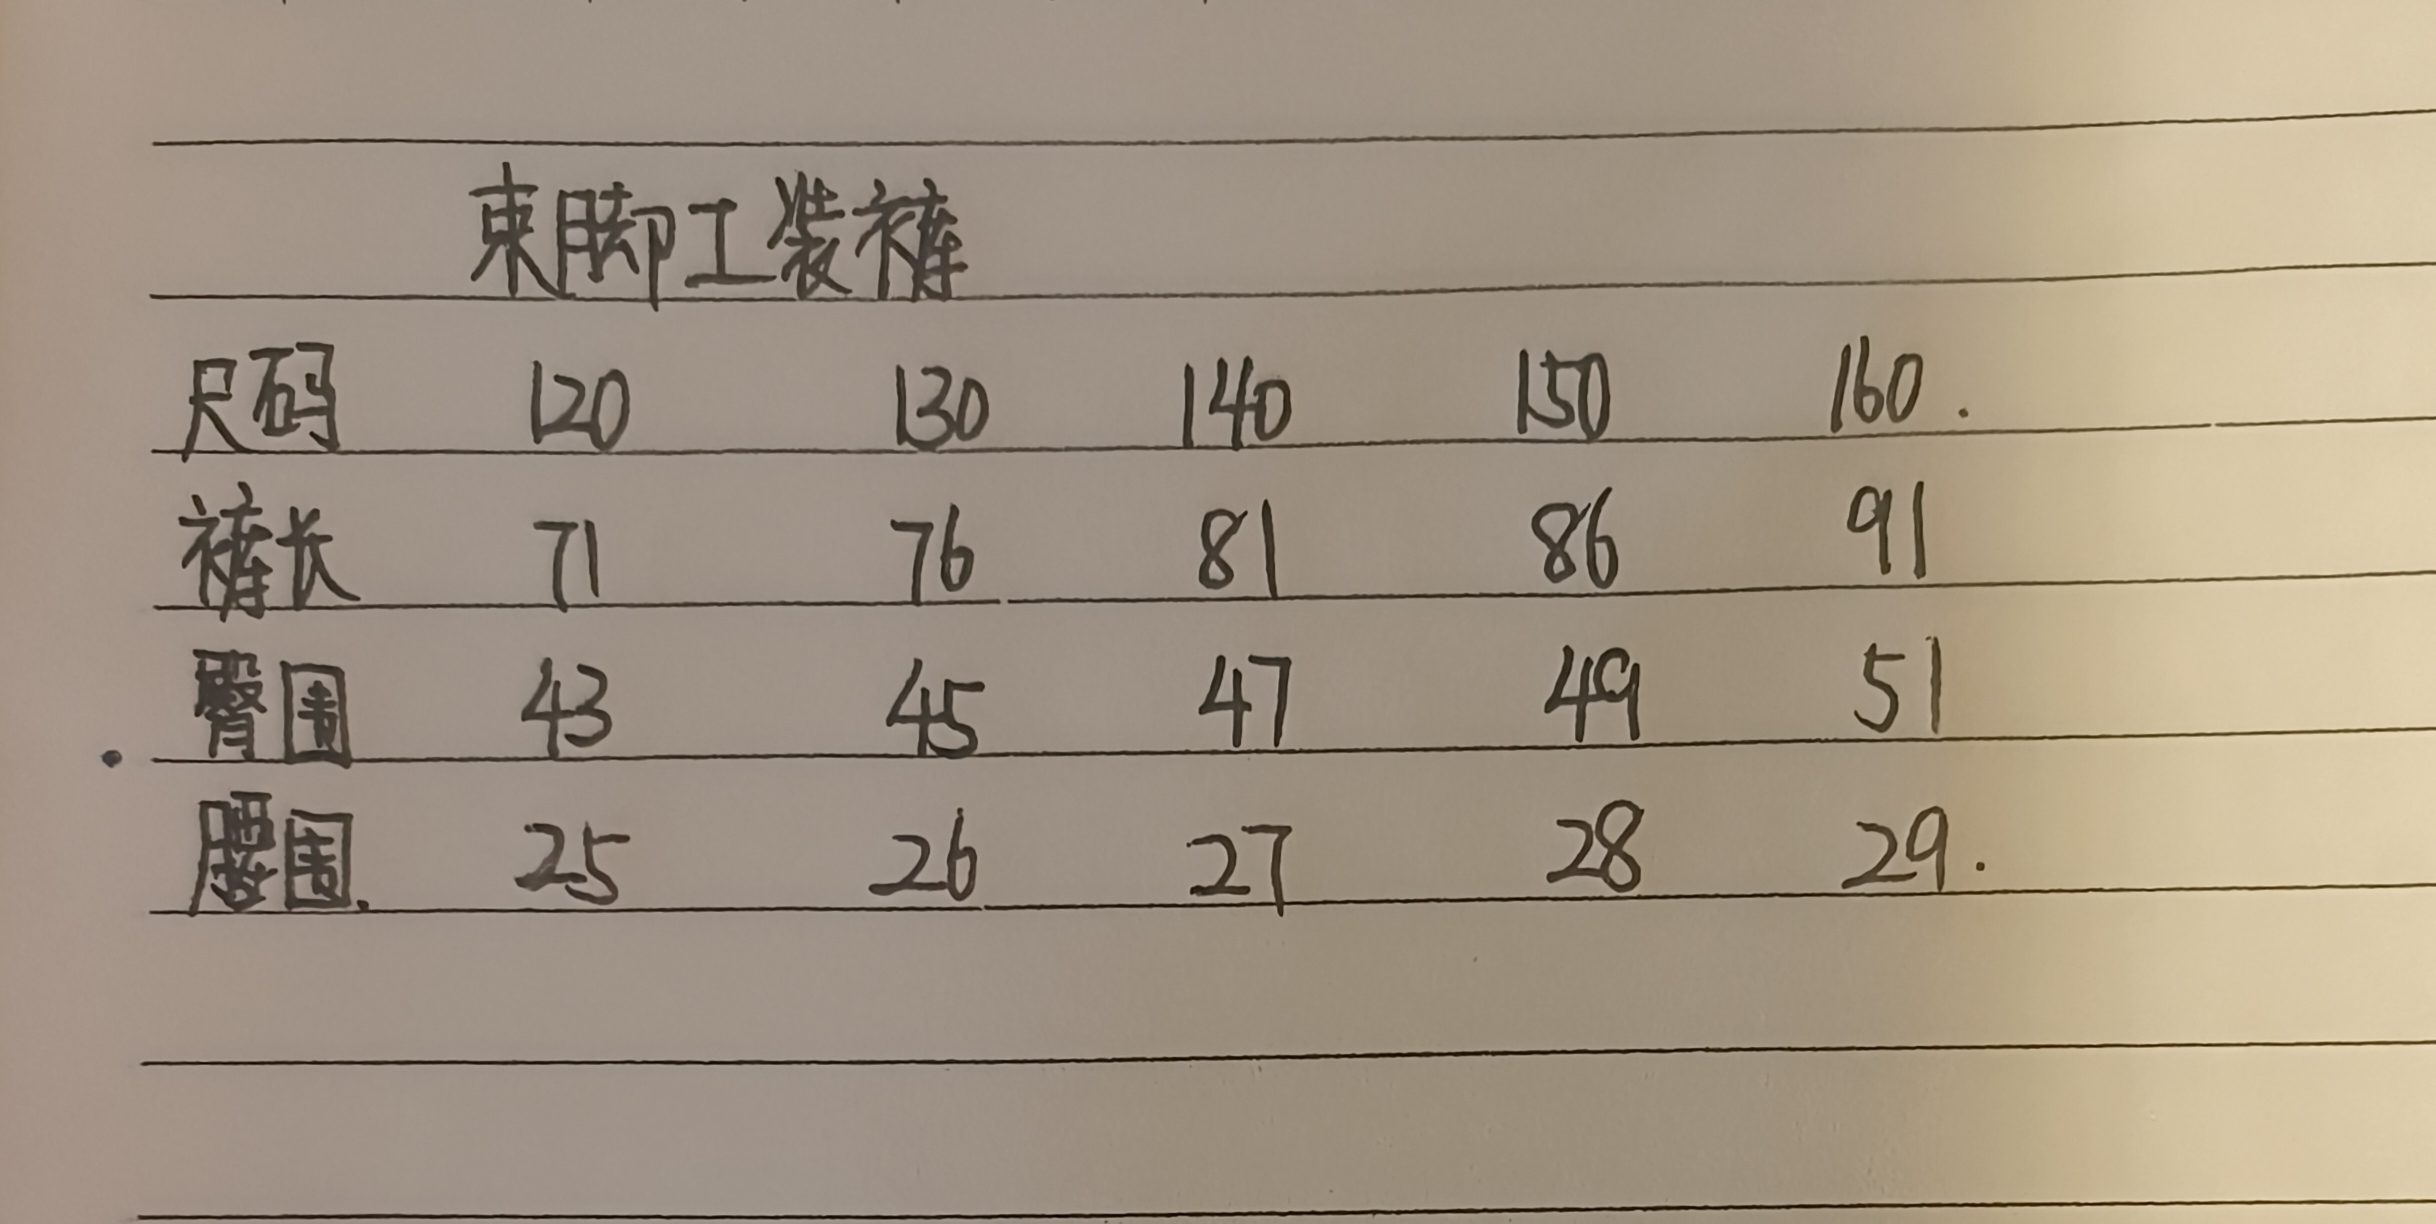 束脚工装裤
尺码 120 130 140 150 160.
裤长 71 76 81 86 91
臀围 43 45 47 49 51
腰围. 25 26 27 28 29.